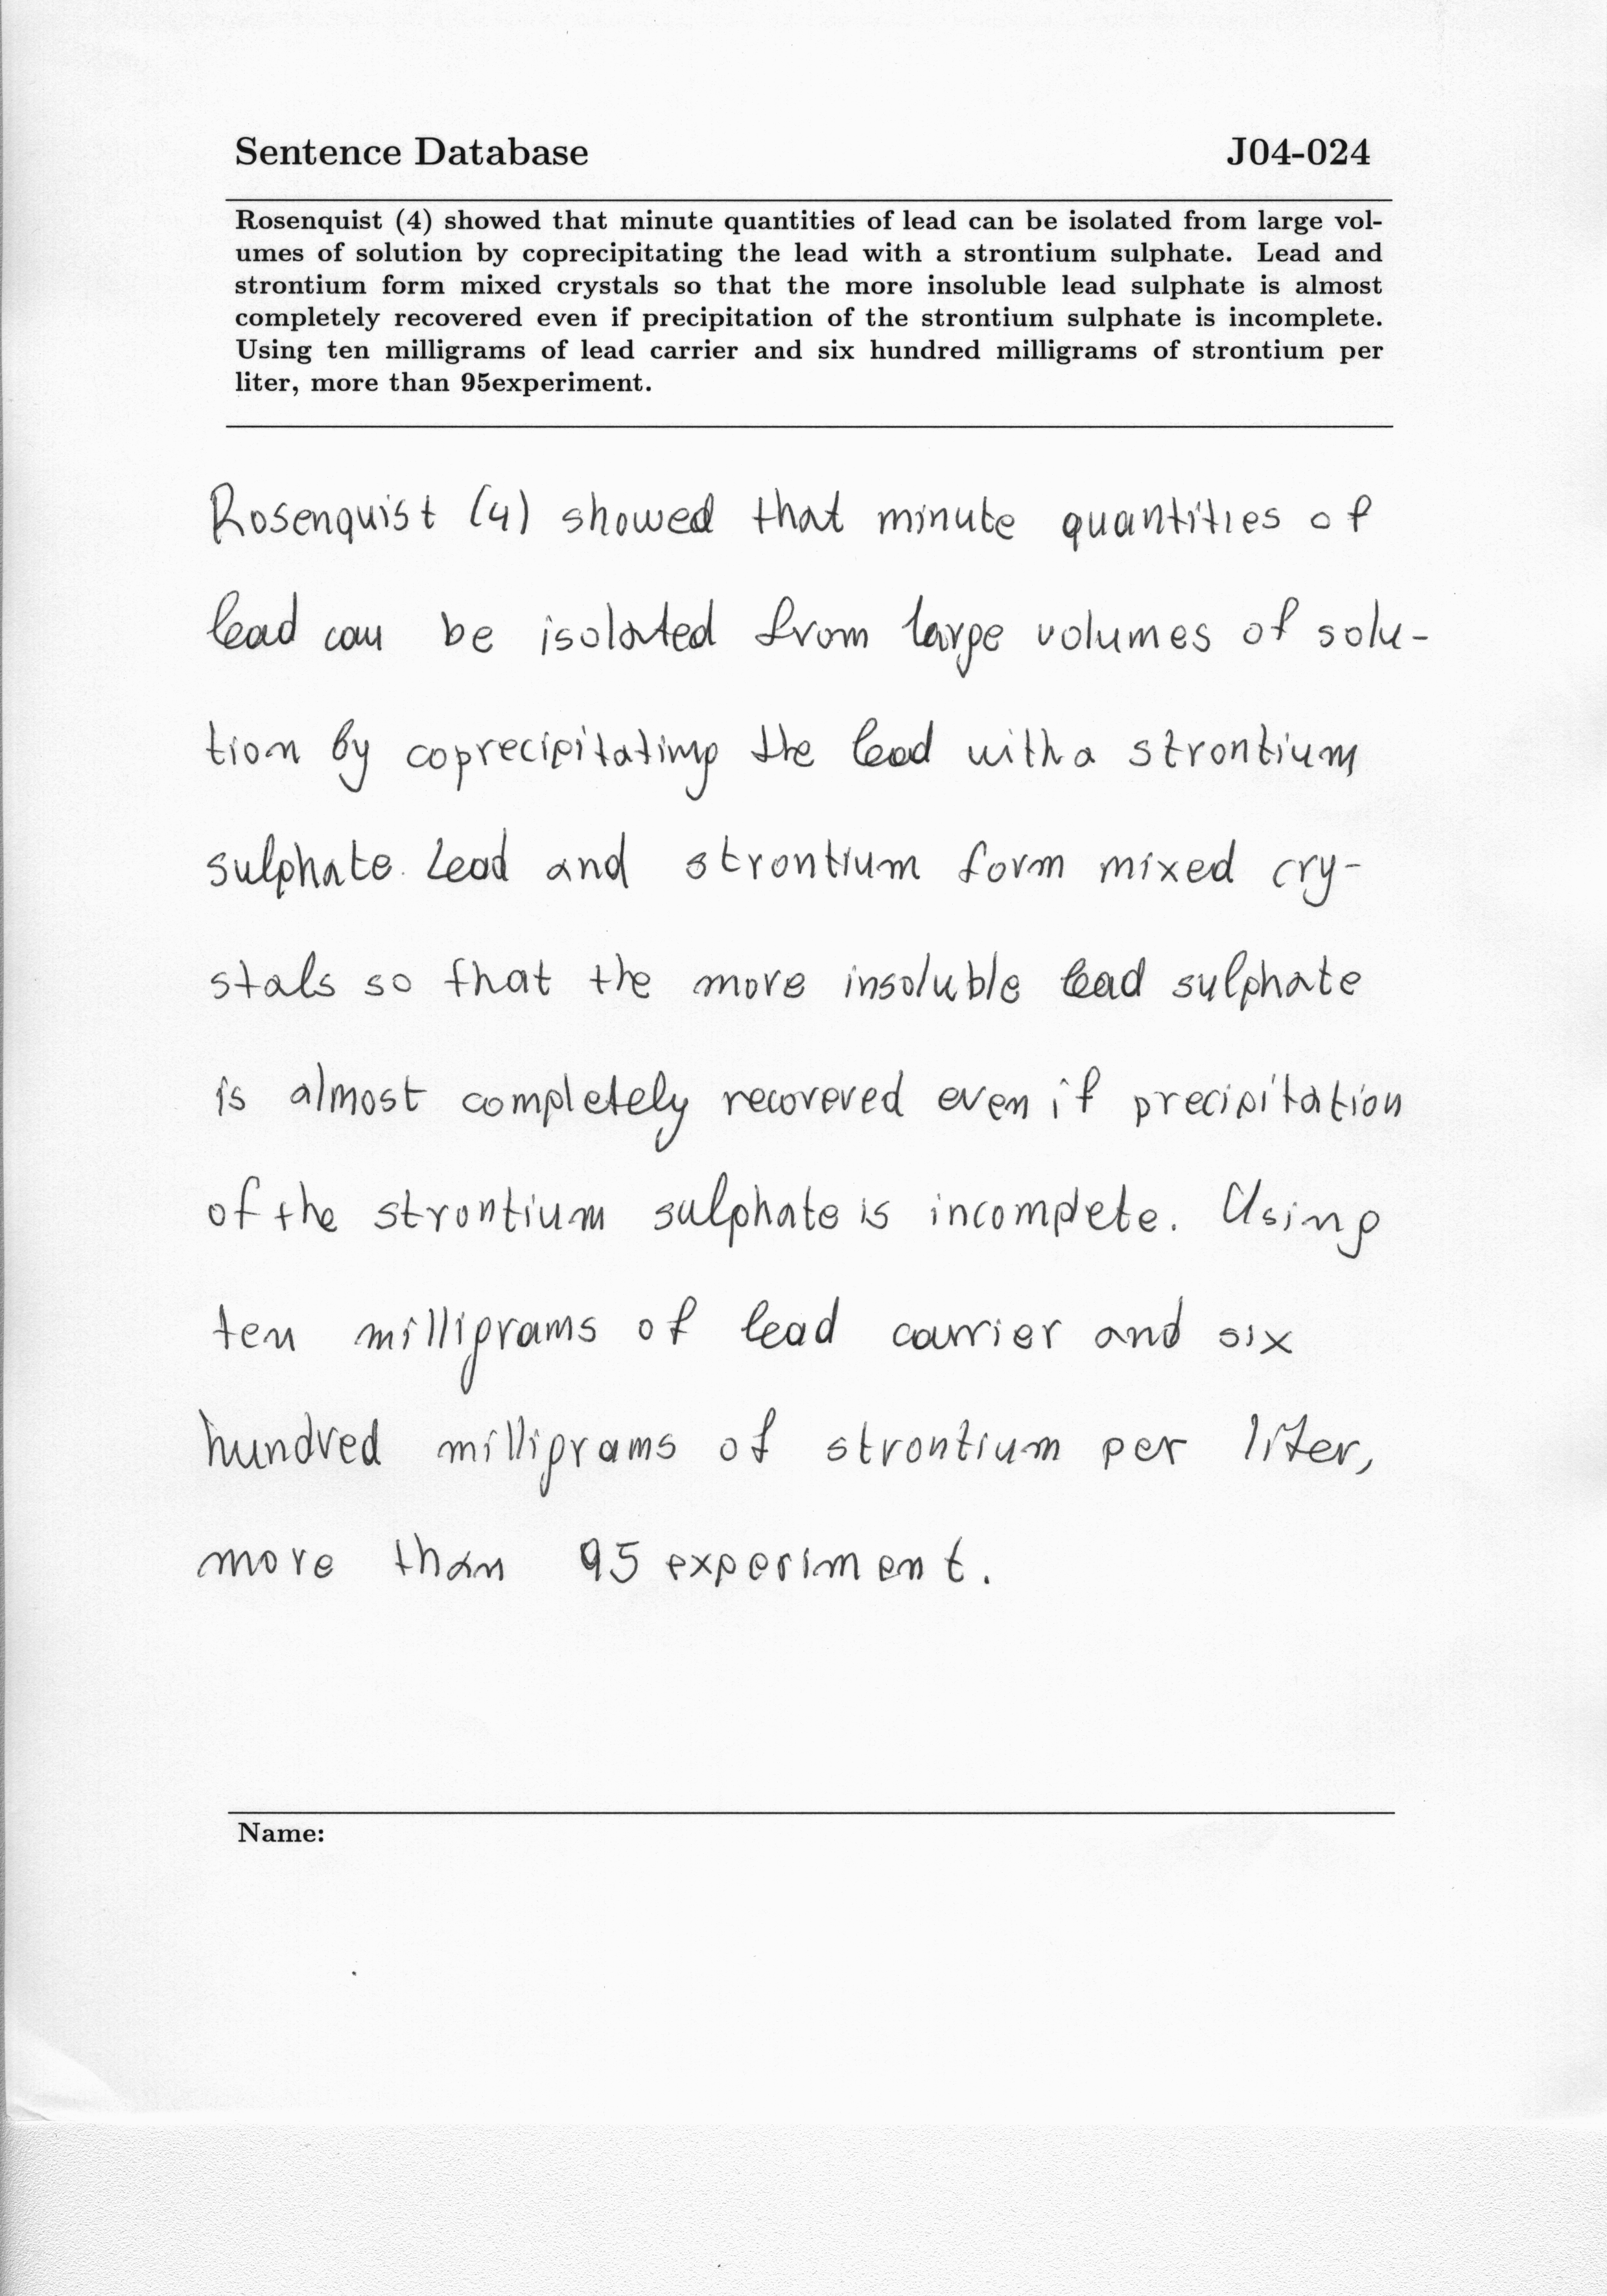 Sentence Database J04-024
Rosenquist (4) showed that minute quantities of lead can be isolated from large vol-
umes of solution by coprecipitating the lead with a strontium sulphate. Lead and
strontium form mixed crystals so that the more insoluble lead sulphate is almost
completely recovered even if precipitation of the strontium sulphate is incomplete.
Using ten milligrams of lead carrier and six hundred milligrams of strontium per
liter, more than 95experiment.
Rosenquist (4) showed that minute quantities of
lead can be isolated from large volumes of solu-
tion by coprecipitating the lead with a strontium
sulphate. Lead and strontium form mixed cry-
stals so that the more insoluble lead sulphate
is almost completely recovered even if precipitation
of the strontium sulphate is incomplete. Using
ten milligrams of lead carrier and six
hundred milligrams of strontium per liter,
more than 95 experiment.
Name: